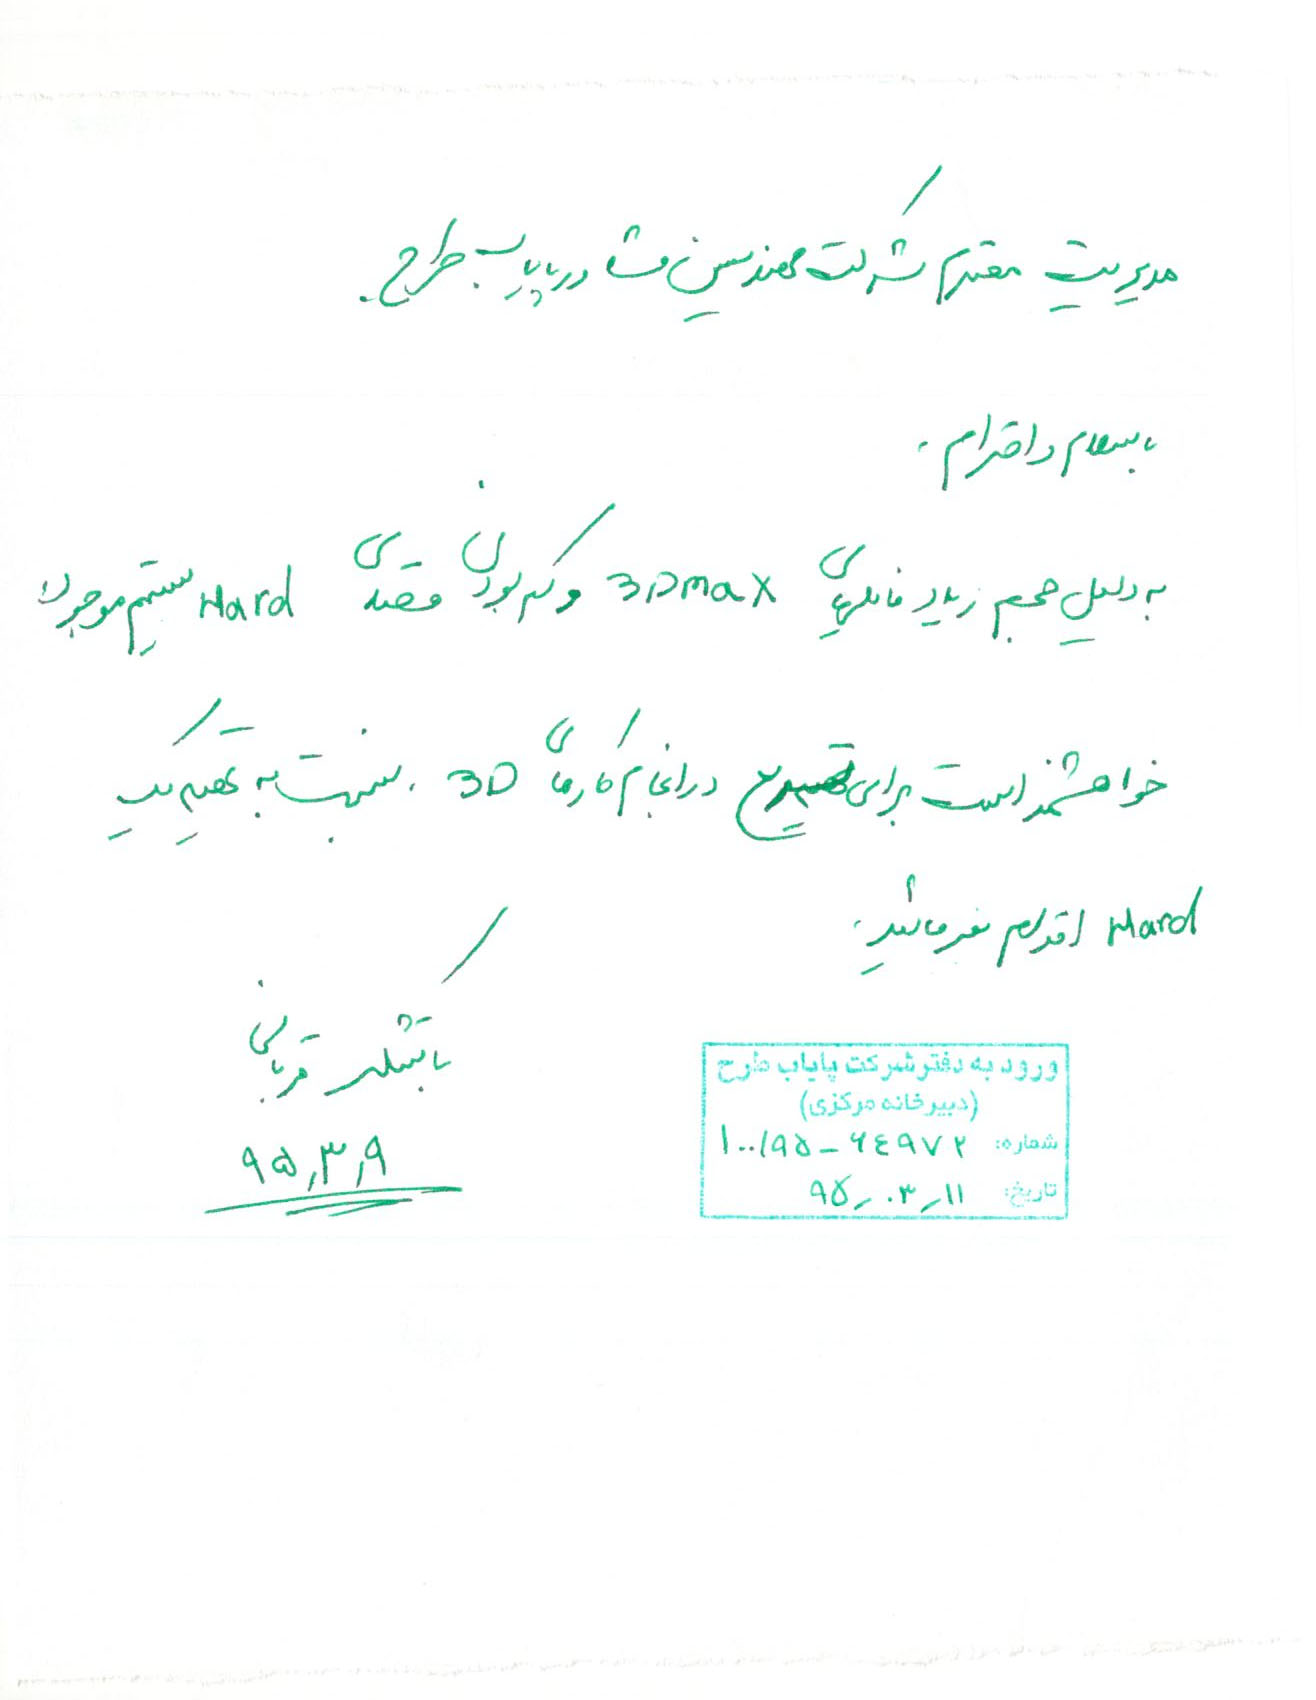 مدیریت محترم شرکت مهندسین مشاور پایاب طرح.
با سلام و احترام،
به دلیل حجم زیاد فایلهای 3Dmax و کم بودن فضای Hard سیستم موجود،
خواهشمند است برای تسریع در انجام کارهای 3D، نسبت به تهیه یک
Hard اقدام بفرمائید.
با تشکر قربانی
۹۵,۳,۹
ورود به دفتر شرکت پایاب طرح
(دبیرخانه مرکزی)
شماره: ۱۰۰/۹۵-۶۴۹۷۲
تاریخ: ۹۵-۰۳-۱۱